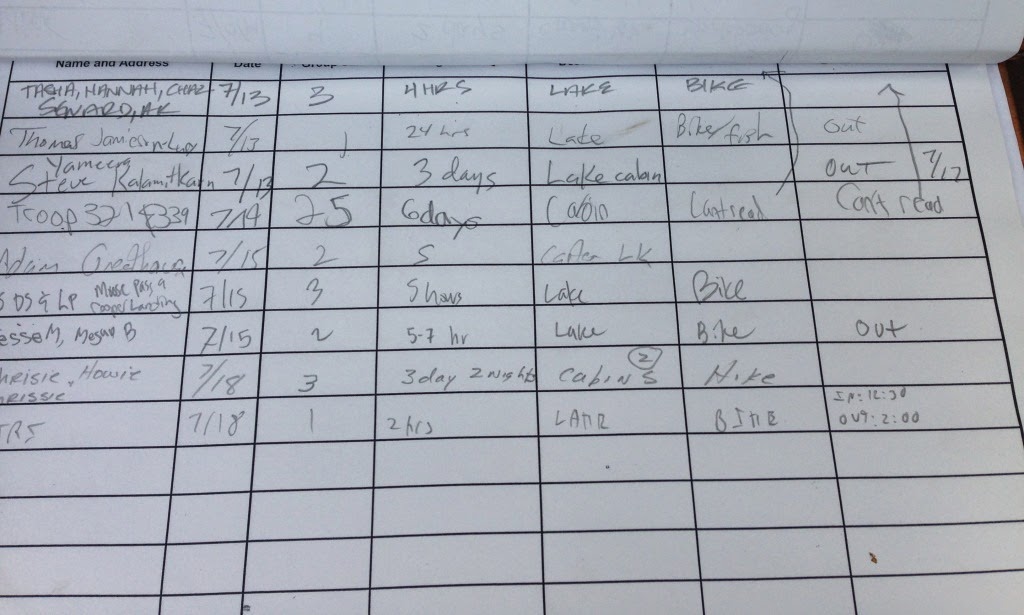 Name and Address Date Group
TASIA, HANNAH, CHAZ 7/13 3 4 HRS LAKE BIKE
SEWARD, AK
Thomas 7/13 1 24 hrs Lake Bike/fish out
Yameen
Steve 7/13 2 3 days Lake cabin OUT 7/17
Troop 321 & 339 7/14 25 6 days Cabin Can't read Can't read
Adam 7/15 2 5 Lk
DS & LP Moose Pass, & 7/15 3 5 hours Lake Bike
Cooper Landing
esse M, Megan B 7/15 2 5-7 hr Lake Bike out
hrisie, Howie 7/18 3 3 day 2 nights cabins 2 Hike
rissie
IN: 12:30
TRS 7/18 1 2 hrs BIKE OUT: 2:00